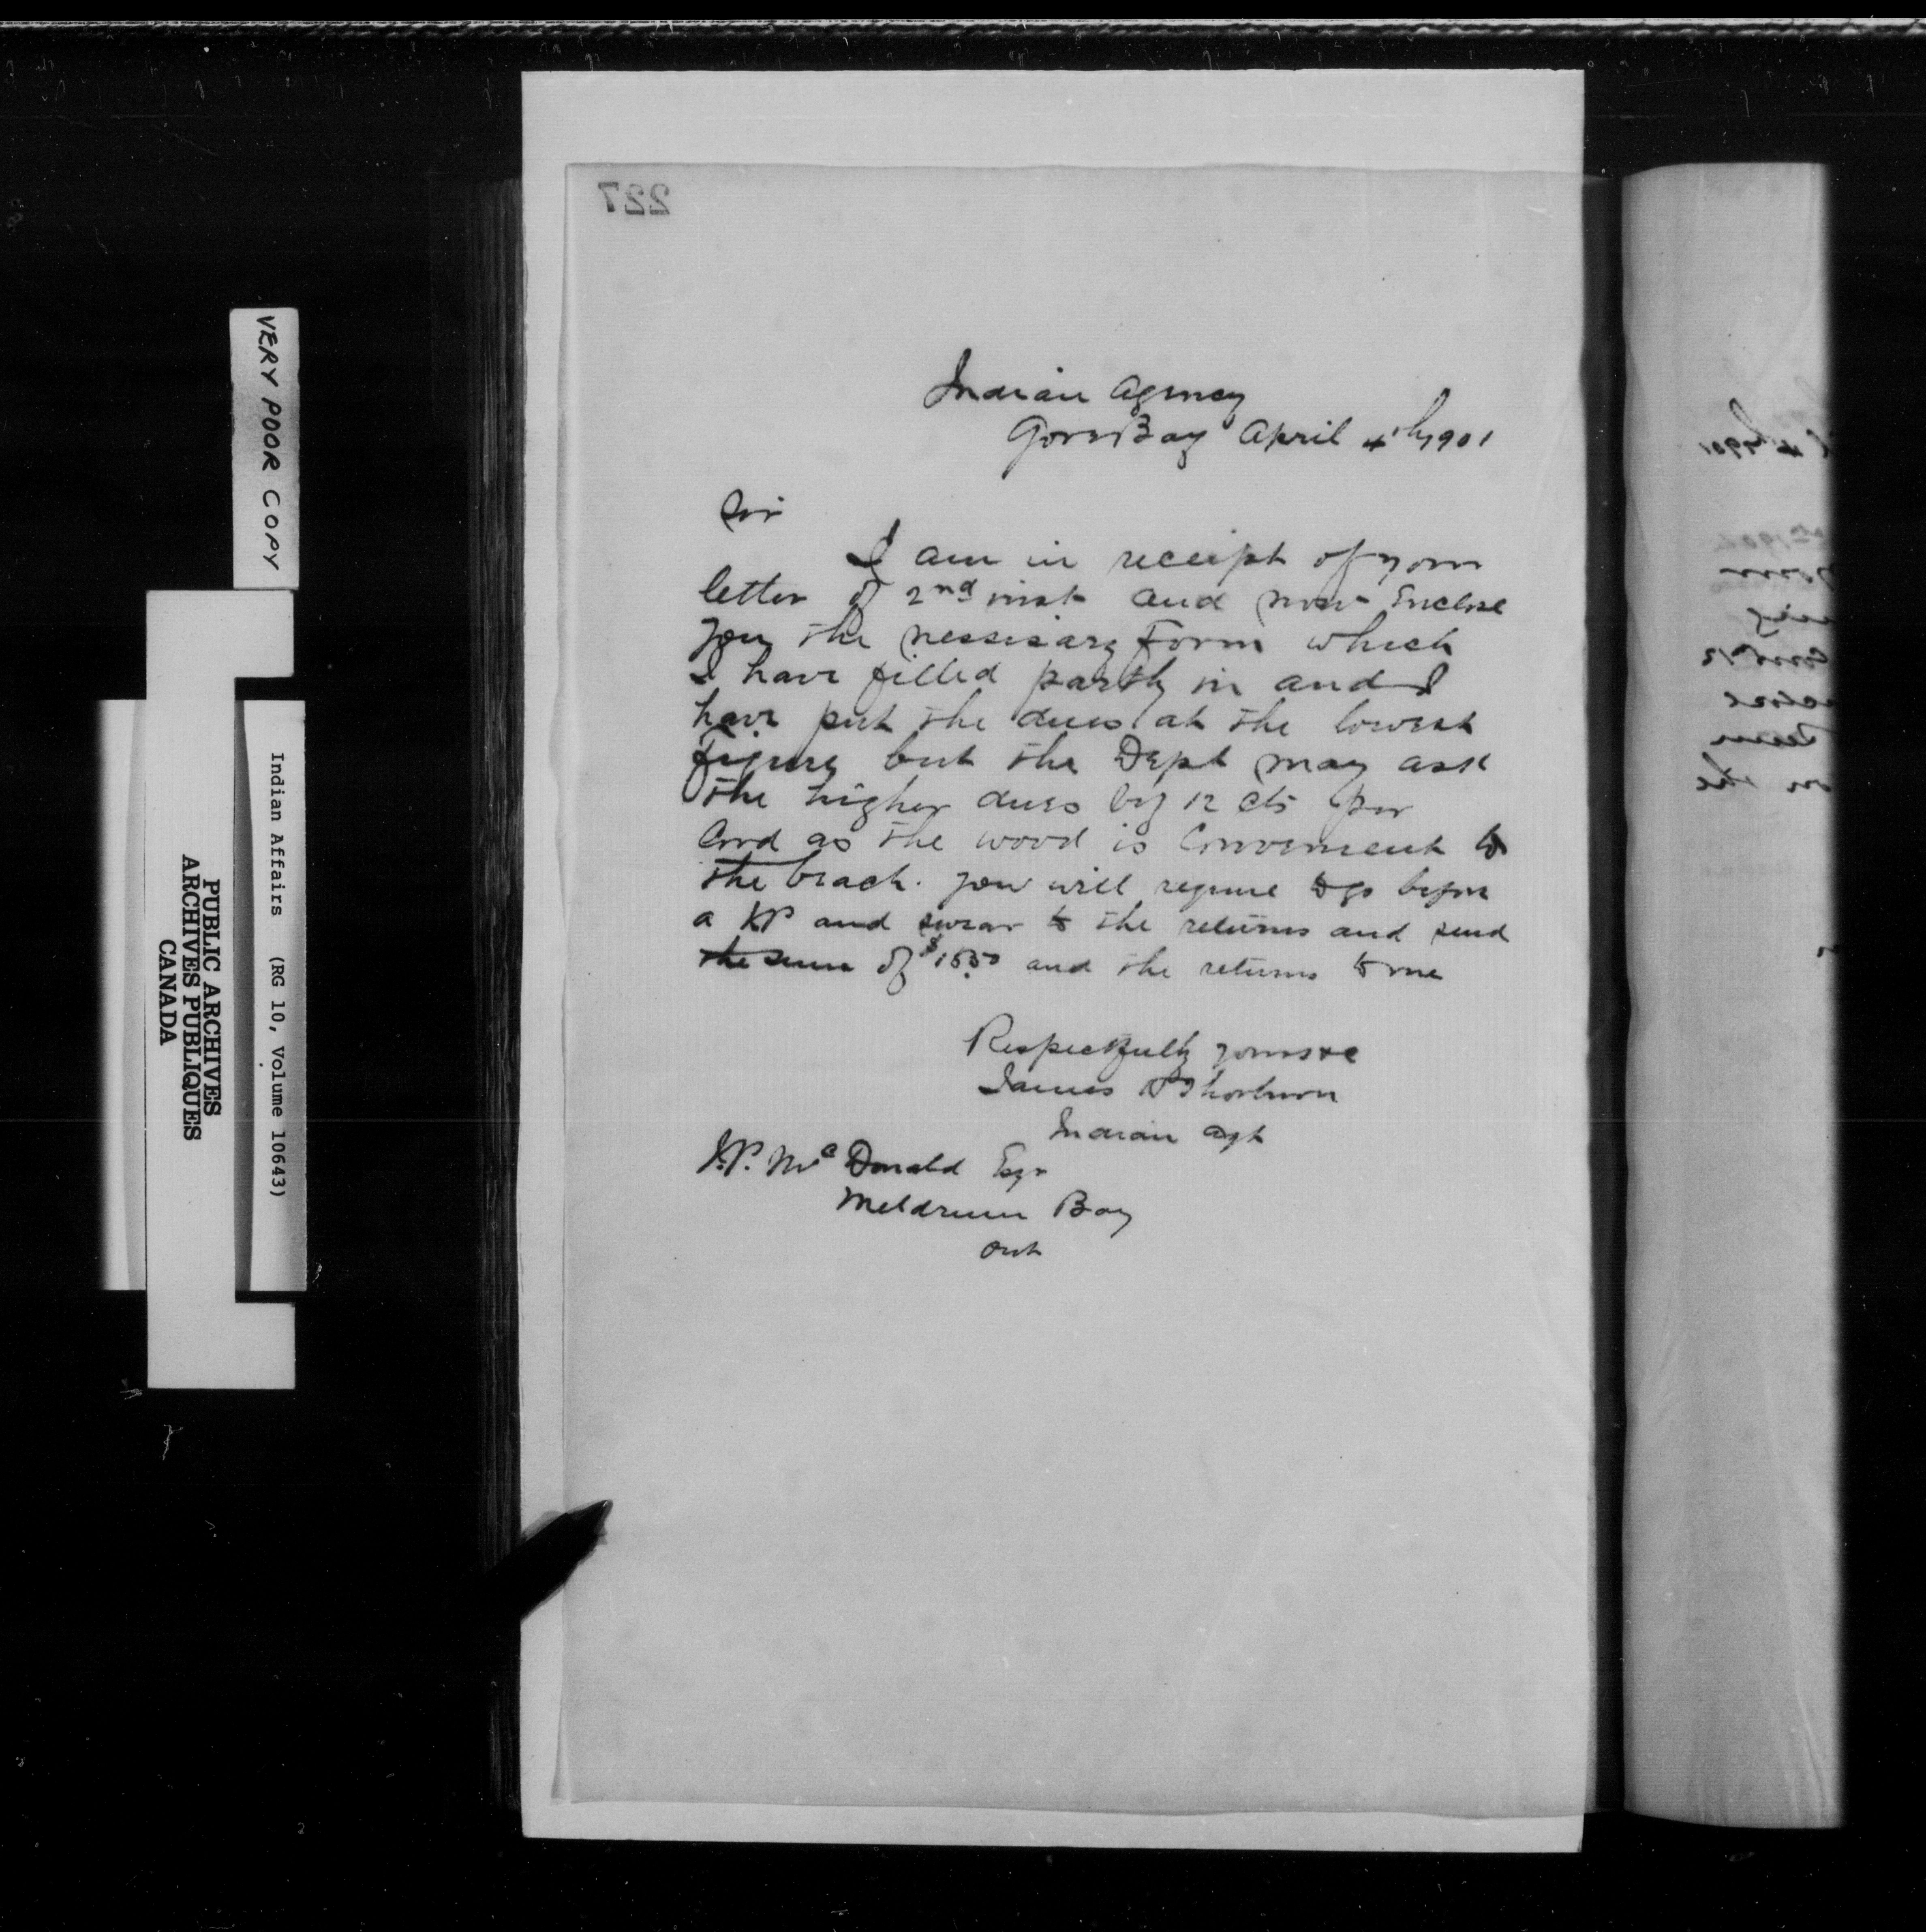 227
Indian Agency
Gore Bay April 4th 1901
Sir
I am in receipt of your
letter of 2nd inst and now Enclose
you the nessisary Form which
I have filled partly in and I
have put the dues at the lowest
figure but the Dept may ask
the higher dues by 12 cts per
Cord as the wood is Convenient to
the beach. you will require to go before
a JP and swear to the returns and send
the sum of $15.50 and the returns to me
Respectfully yours &c
James H Thorburn
Indian Agt
J.P. McDonald Esqr
Meldrum Bay
Ont
VERY POOR COPY
Indian Affairs (RG 10, Volume 10643)
PUBLIC ARCHIVES
ARCHIVES PUBLIQUES
CANADA